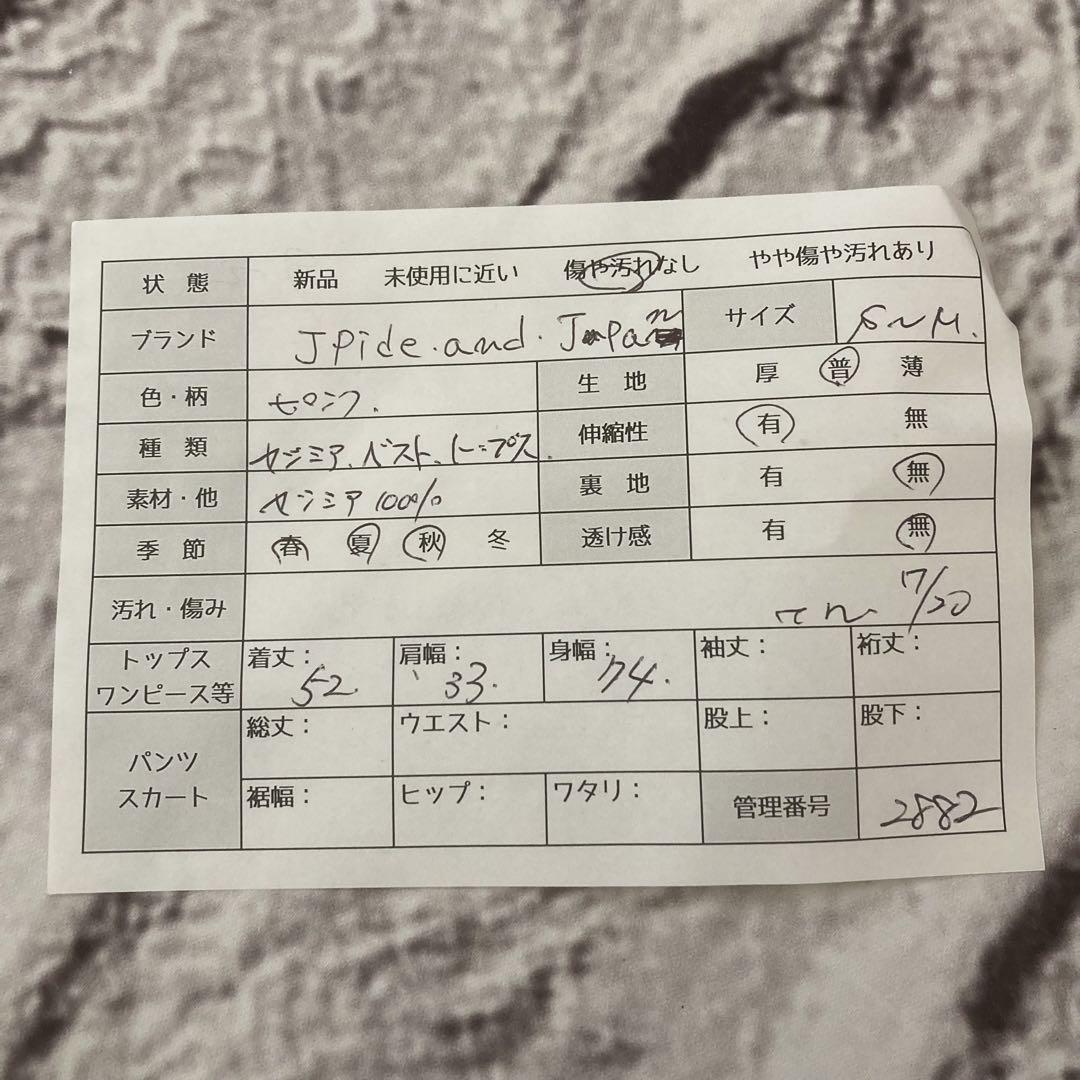 状態 新品 未使用に近い 傷や汚れなし やや傷や汚れあり
ブランド Jpide.and.Japan サイズ S〜M.
色・柄 ピンク. 生地 厚 普 薄
種類 カシミア、ベスト、トップス. 伸縮性 有 無
素材・他 カシミア100% 裏地 有 無
季節 春 夏 秋 冬 透け感 有 無
汚れ・傷み 7/20
トップス ワンピース等 着丈: 52 肩幅: 33. 身幅: 74. 袖丈: 裄丈:
パンツ スカート 総丈: ウエスト: 股上: 股下:
裾幅: ヒップ: ワタリ: 管理番号 2882